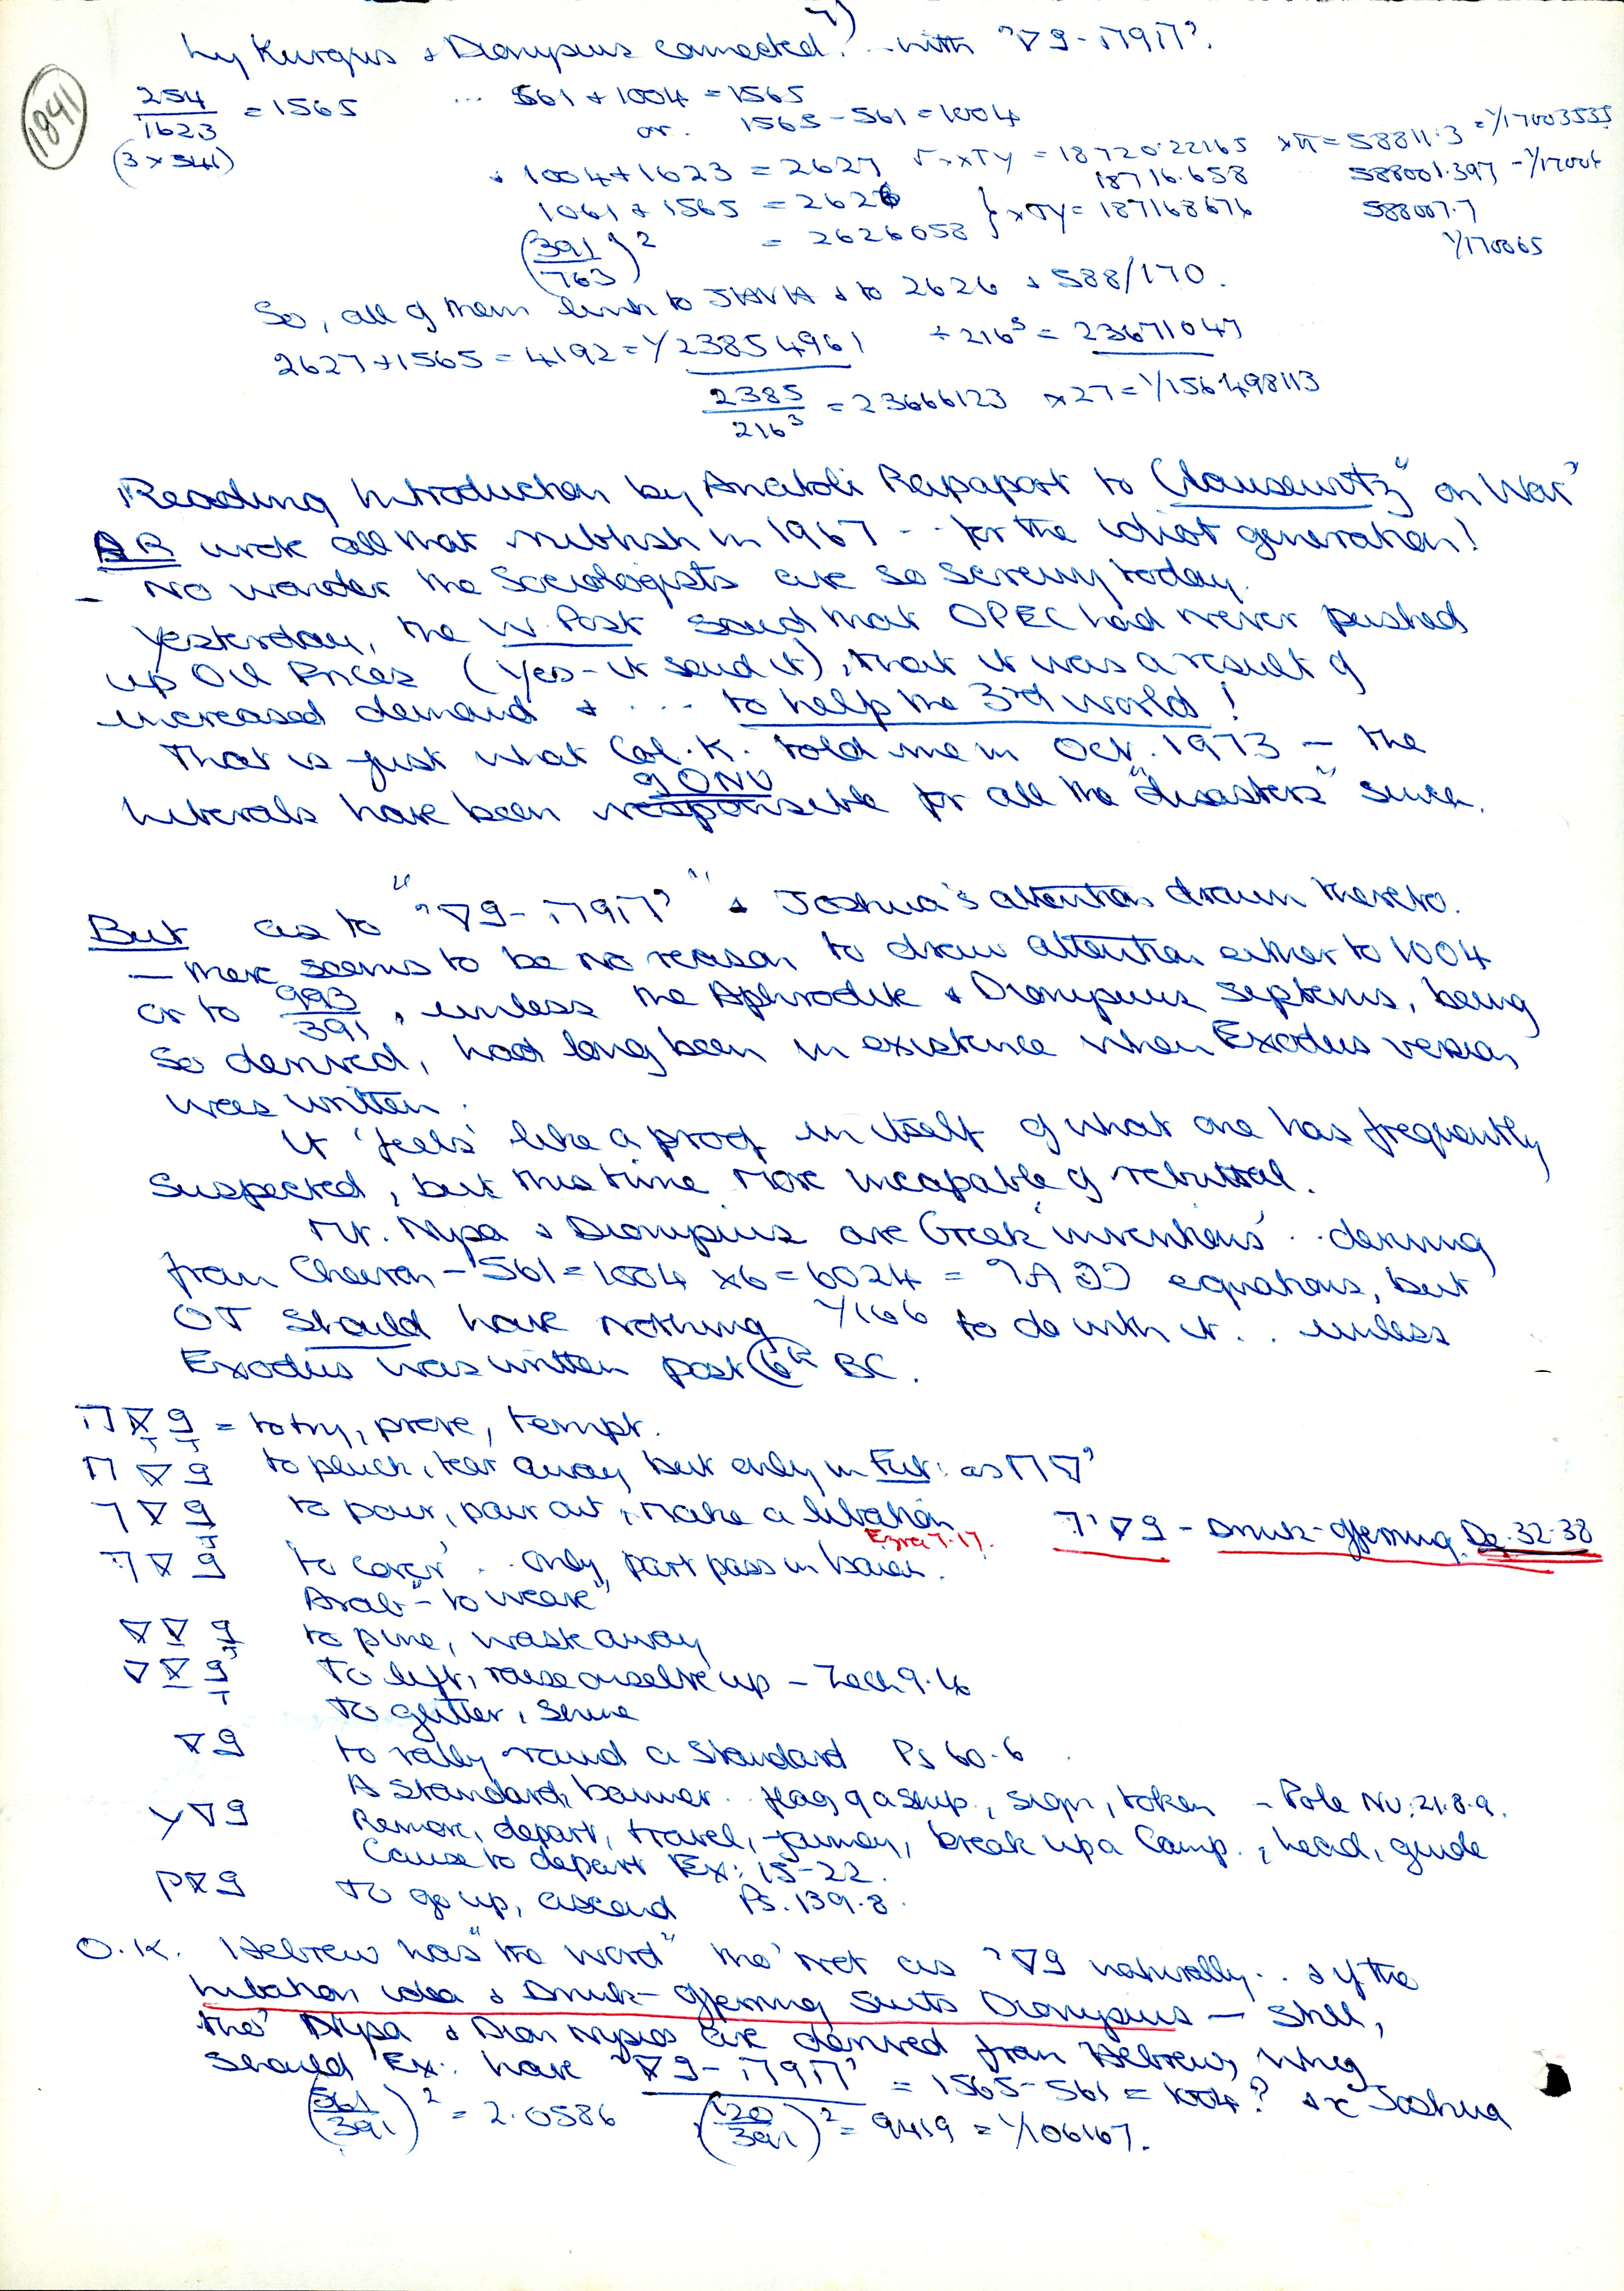 7)
Lykurgus & Dionysus connected? .. with
1841
254/1623 = 1565 ... 561 + 1004 = 1565
(3 x 541) or. 1565 - 561 = 1004
+ 1004 + 1623 = 2627 = 18720.22165 x π = 58811.3 = 1/17003535
18716.658 588001.397 - 1/17006
1061 + 1565 = 2626 } = 187168676 588007.7
(391/763)² = 2626058 1/170065
So, all of them link to & to 2626 & 588/170.
2627 + 1565 = 4192 = 1/23854961 ÷ 216³ = 23671047
2385/216³ = 23666123 x 27 = 1/156498113
Reading Introduction by Anatoli Rapaport to Clausewitz "on War"
AR wrote all that rubbish in 1967 -- for the idiot generation!
- No wonder the Sociologists are so screwy today.
Yesterday, the W. Post said that OPEC had never pushed
up Oil Prices (Yes - it said it), that it was a result of
increased demand & .... to help the 3rd World!
That is just what Col. K. told me in Oct. 1973 - the
liberals have been responsible for all the "disasters" since.
But as to & Joshua's attention drawn thereto.
- there seems to be no reason to draw attention either to 1004
or to 993/391, unless the Aphrodite & Dionysus systems, being
so derived, had long been in existence when Exodus version
was written.
It 'feels' like a proof in itself of what one has frequently
suspected, but this time more incapable of rebuttal.
Mt. Nysa & Dionysius are Greek 'inventions' .. deriving
from - 561 = 1004 x 6 = 6024 = equations, but
OT should have nothing 1/166 to do with it .. unless
Exodus was written post 6th BC.
= to try, prove, tempt.
to pluck, tear away but only in Fut: as
to pour, pour out, make a libation
Ezra 7.17. - Drink-offering. De. 32.38
to cover .. only part pass in
Arab - "to weave"
to pine, waste away
to lift, raise oneself up - Zech 9.16
to glitter, shine
to rally round a standard Ps 60.6
A standard, banner .. flag of a ship, sign, token - Pole Nu: 21.8.9.
Remove, depart, travel, journey, break up a Camp., lead, guide
Cause to depart Ex: 15-22.
to go up, ascend Ps. 139.8.
O.K. Hebrew has "the word" tho' not as naturally .. & if the
libation idea & Drink-offering suits Dionysus - still,
tho' Nysa & Dion Nysos are derived from Hebrew, why
should Ex: have = 1565 - 561 = 1004? & Joshua
(561/391)² = 2.0586 (120/391)² = 9419 = 1/06167.